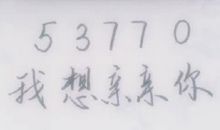 53770
我想亲亲你